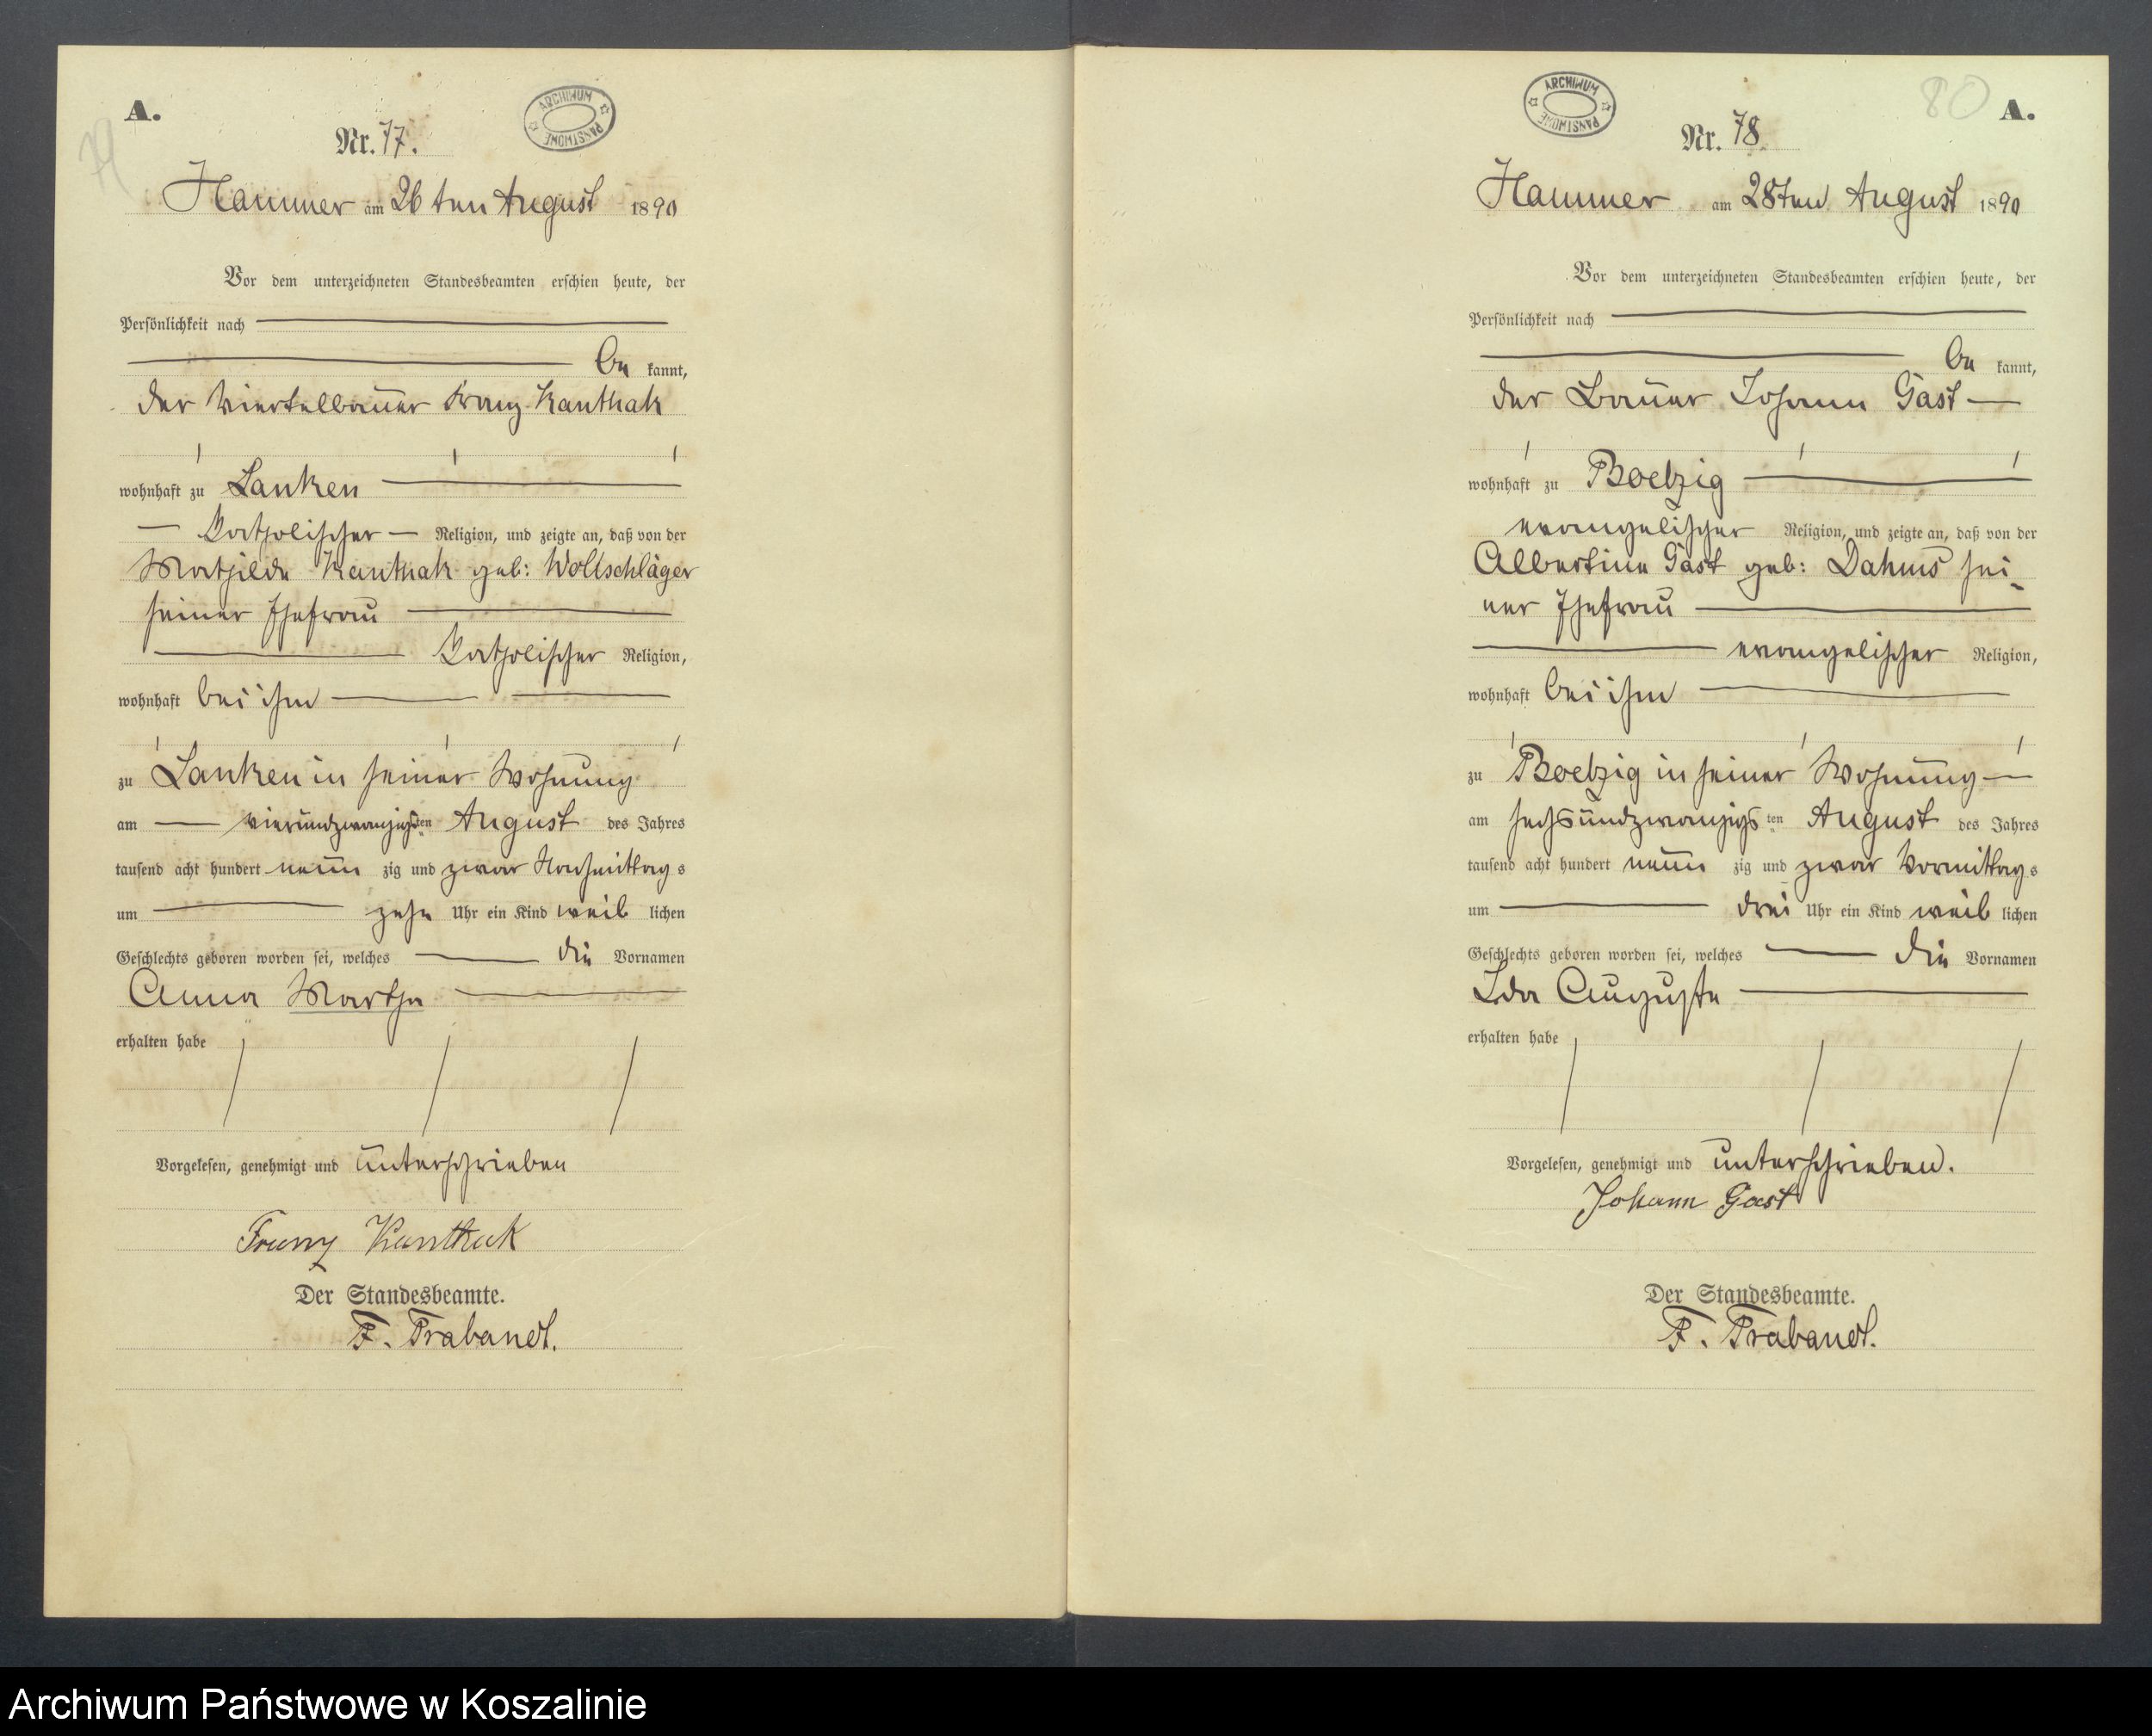 A.
ARCHIWUM PAŃSTWOWE
Nr. 77.
Hammer am 26 ten August 1890
Vor dem unterzeichneten Standesbeamten erschien heute, der
Persönlichkeit nach
be kannt,
der Viertelbauer Franz Kanthak
wohnhaft zu Lanken
katholischer Religion, und zeigte an, daß von der
Mathilde Kanthak geb: Wollschläger
seiner Ehefrau
katholischer Religion,
wohnhaft bei ihm
zu Lanken in seiner Wohnung
am vierundzwanzigsten August des Jahres
tausend acht hundert neun zig und zwar Nachmittag s
um zehn Uhr ein Kind weib lichen
Geschlechts geboren worden sei, welches die Vornamen
Anna Martha
erhalten habe
Vorgelesen, genehmigt und unterschrieben
Franz Kanthak
Der Standesbeamte.
F. Trabandt.
ARCHIWUM PAŃSTWOWE
80
A.
Nr. 78.
Hammer am 28ten August 1890
Vor dem unterzeichneten Standesbeamten erschien heute, der
Persönlichkeit nach
be kannt,
der Bauer Johann Gast
wohnhaft zu Boetzig
evangelischer Religion, und zeigte an, daß von der
Albertine Gast geb: Dahms sei-
ner Ehefrau
evangelischer Religion,
wohnhaft bei ihm
zu Boetzig in seiner Wohnung
am sechsundzwanzigs ten August des Jahres
tausend acht hundert neun zig und zwar Vormittag s
um drei Uhr ein Kind weib lichen
Geschlechts geboren worden sei, welches die Vornamen
Ida Auguste
erhalten habe
Vorgelesen, genehmigt und unterschrieben.
Johann Gast
Der Standesbeamte.
F. Trabandt.
Archiwum Państwowe w Koszalinie